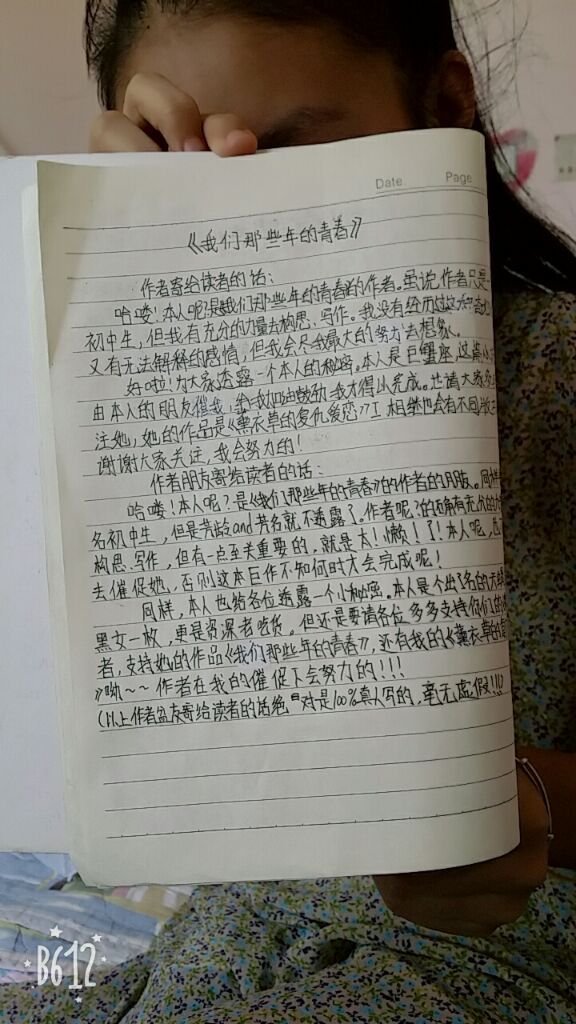 Date Page
《我们那些年的青春》
作者寄给读者的话:
哈喽!本人呢?是我们那些年的青春的作者。虽说作者只是一
初中生,但我有充分的力量去构思、写作。我没有经历过这
又有无法解释的感情,但我会尽我最大的努力去想象。
好啦!为大家透露一个本人的秘密。本人是巨蟹座,这
由本人的朋友催我!给我加油鼓劲我才得以完成。也请大家多
注她,她的作品是《薰衣草的复仇爱恋》I 相继也会有不同
谢谢大家关注,我会努力的!
作者朋友寄给读者的话:
哈喽!本人呢?是《我们那些年的青春》的作者的朋友。同样
名初中生,但是芳龄and芳名就不透露了。作者呢?的确有充分的力
构思、写作,但有一点至关重要的,就是太!懒!了!本人呢,
去催促她,否则这本巨作不知何时才会完成呢!
同样,本人也给各位透露一个小秘密。本人是个出了名的
黑女一枚,更是资深老吃货。但还是要请各位多多支持你们的
者,支持她的作品《我们那些年的青春》,还有我的《薰衣草的
》呦~~作者在我的催促下会努力的!!!
(以上作者盆友寄给读者的话绝对是100%真人写的,毫无虚假!!!)
B612